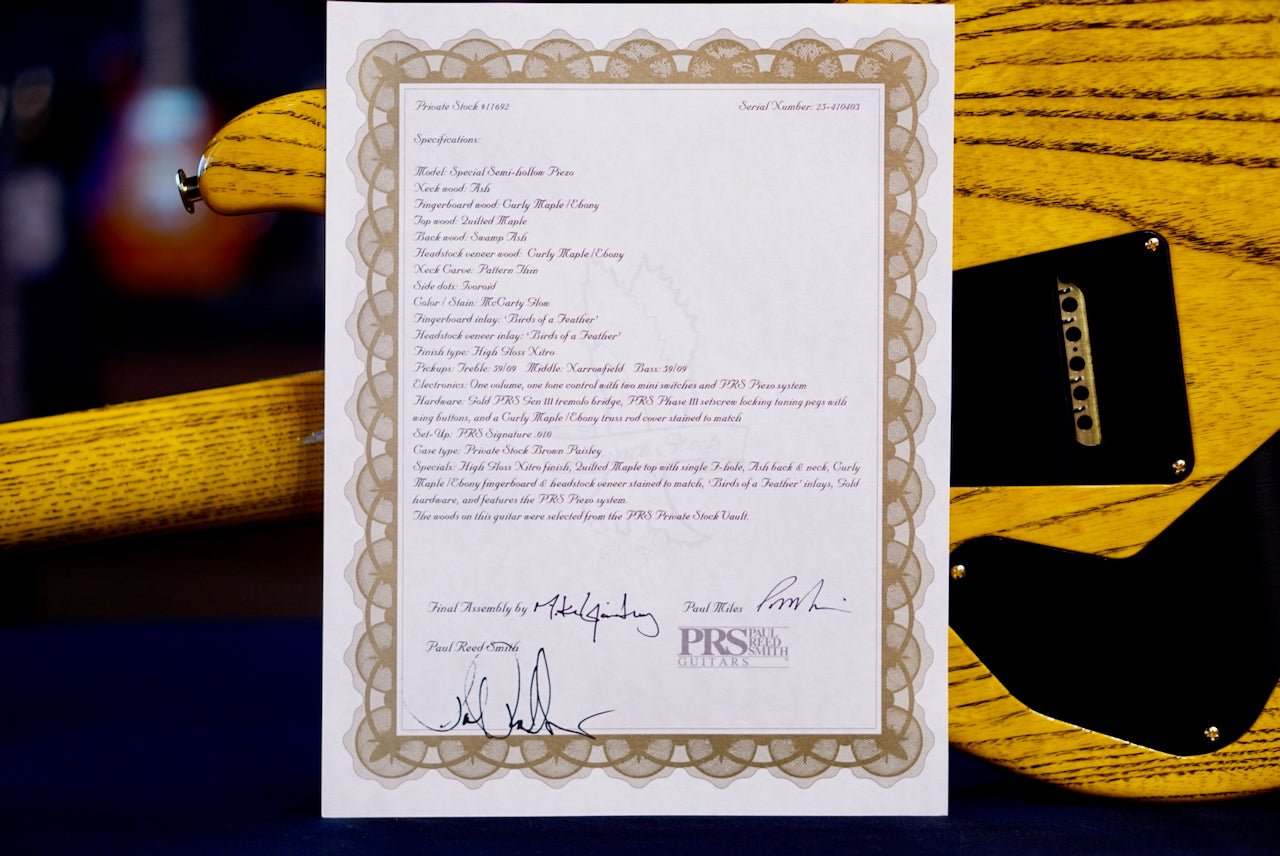 Private Stock #11692
Serial Number: 25-410403
Specifications:
Model: Special Semi-hollow Piezo
Neck wood: Ash
Fingerboard wood: Curly Maple / Ebony
Top wood: Quilted Maple
Back wood: Swamp Ash
Headstock veneer wood: Curly Maple / Ebony
Neck Carve: Pattern Thin
Side dots: Ivoroid
Color / Stain: McCarty Glow
Fingerboard inlay: 'Birds of a Feather'
Headstock veneer inlay: 'Birds of a Feather'
Finish type: High Gloss Nitro
Pickups: Treble: 59/09 Middle: Narrowfield Bass: 59/09
Electronics: One volume, one tone control with two mini switches and PRS Piezo system
Hardware: Gold PRS Gen III tremolo bridge, PRS Phase III setscrew locking tuning pegs with
wing buttons, and a Curly Maple / Ebony truss rod cover stained to match
Set-Up: PRS Signature .010
Case type: Private Stock Brown Paisley
Specials: High Gloss Nitro finish, Quilted Maple top with single F-hole, Ash back & neck, Curly
Maple / Ebony fingerboard & headstock veneer stained to match, 'Birds of a Feather' inlays, Gold
hardware, and features the PRS Piezo system.
The woods on this guitar were selected from the PRS Private Stock Vault.
Final Assembly by
Paul Miles
Paul Reed Smith
PRS PAUL REED SMITH
GUITARS